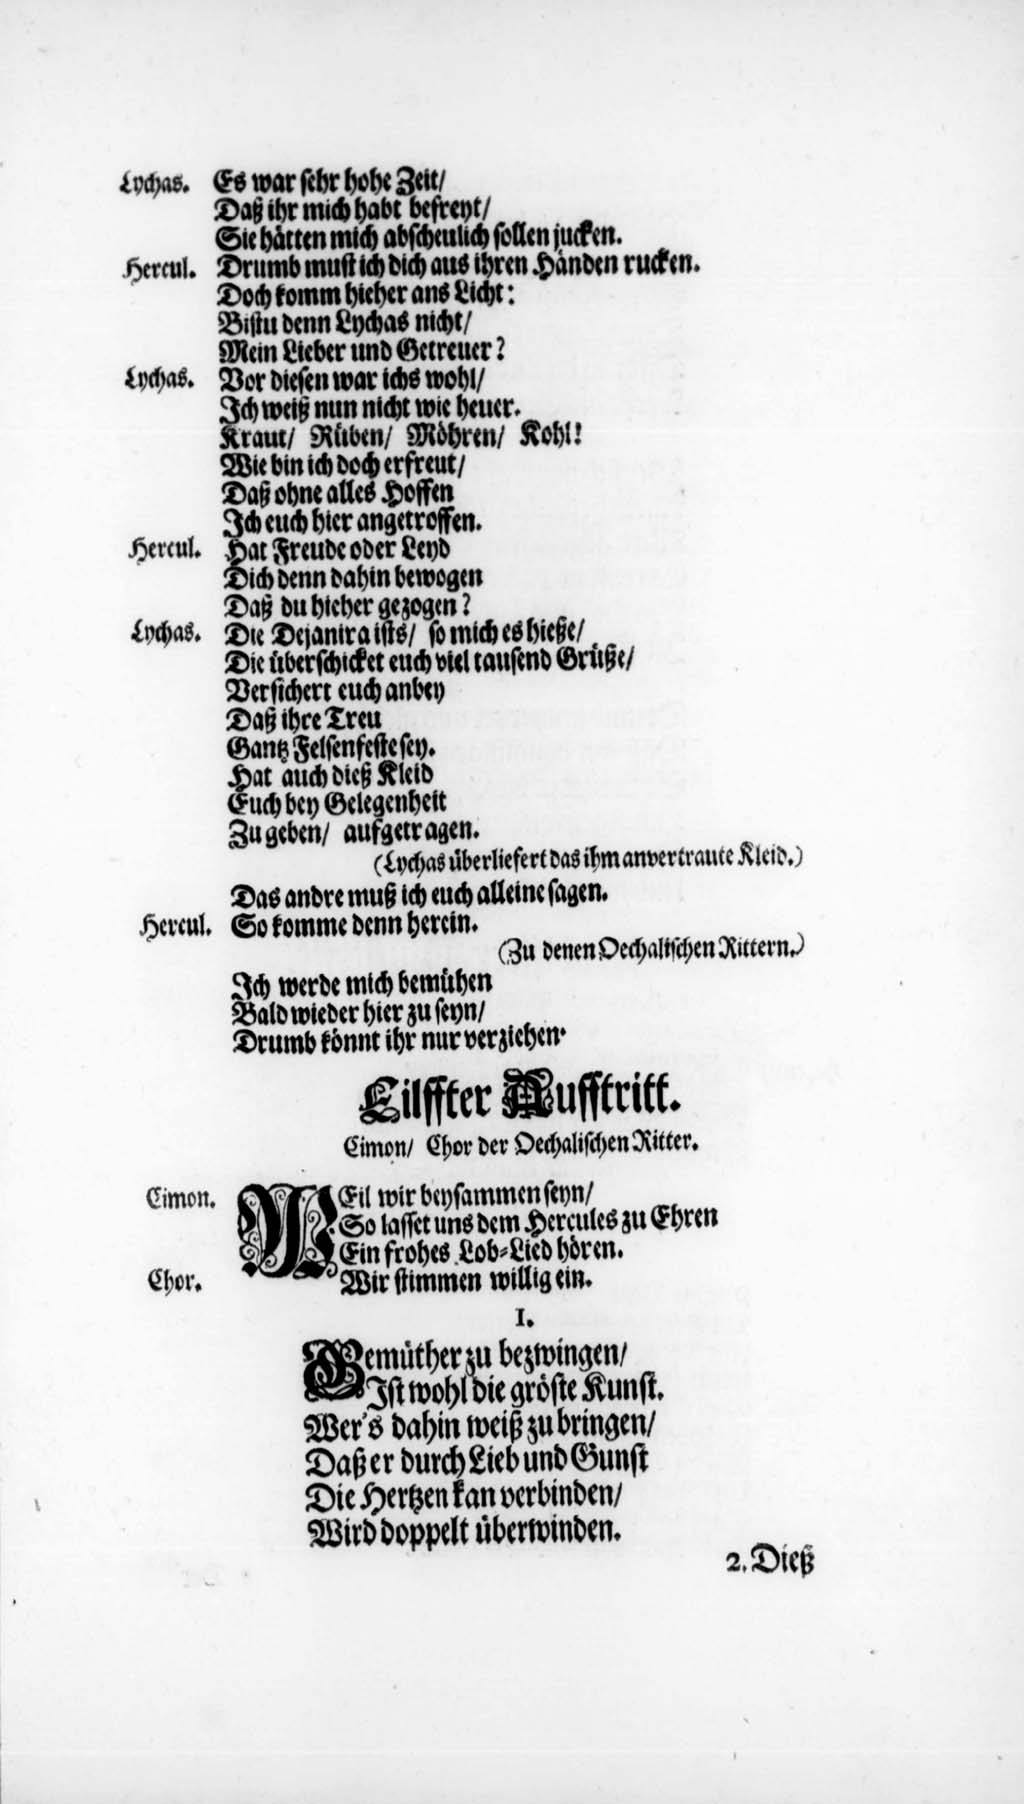 Lychas. Es war sehr hohe Zeit/
Daß ihr mich habt befreyt/
Sie hätten mich abscheulich sollen jucken.
Hercul. Drumb must ich dich aus ihren Händen rucken.
Doch komm hieher ans Licht:
Bistu denn Lychas nicht/
Mein Lieber und Getreuer?
Lychas. Vor diesen war ichs wohl/
Ich weiß nun nicht wie heuer.
Kraut/ Rüben/ Möhren/ Kohl!
Wie bin ich doch erfreut/
Daß ohne alles Hoffen
Ich euch hier angetroffen.
Hercul. Hat Freude oder Leyd
Dich denn dahin bewogen
Daß du hieher gezogen?
Lychas. Die Dejanira ists/ so mich es hieße/
Die überschicket euch viel tausend Grüße/
Versichert euch anbey
Daß ihre Treu
Gantz Felsenfeste sey.
Hat auch dieß Kleid
Euch bey Gelegenheit
Zu geben/ aufgetragen.
(Lychas überliefert das ihm anvertraute Kleid.)
Das andre muß ich euch alleine sagen.
Hercul. So komme denn herein.
(Zu denen Oechalischen Rittern.)
Ich werde mich bemühen
Bald wieder hier zu seyn/
Drumb könnt ihr nur verziehen.
Eilffter Aufftritt.
Cimon/ Chor der Oechalischen Ritter.
Cimon. WEil wir beysammen seyn/
So lasset uns dem Hercules zu Ehren
Ein frohes Lob-Lied hören.
Chor. Wir stimmen willig ein.
I.
Gemüther zu bezwingen/
Ist wohl die gröste Kunst.
Wer's dahin weiß zu bringen/
Daß er durch Lieb und Gunst
Die Hertzen kan verbinden/
Wird doppelt überwinden.
2. Dieß